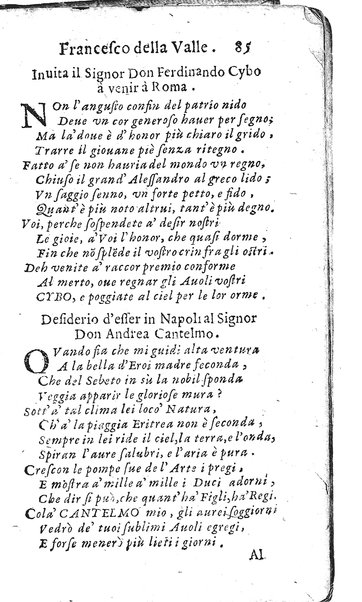 Francesco della Valle. 85
Inuita il Signor Don Ferdinando Cybo
à venir à Roma.
NOn l'angusto confin del patrio nido
Deue vn cor generoso hauer per segno;
Ma la'doue è d'honor più chiaro il grido,
Trarre il giouane piè senza ritegno.
Fatto a' se non hauria del mondo vn regno,
Chiuso il grand'Alessandro al greco lido;
Vn saggio senno, vn forte petto, e fido,
Quant'è più noto altrui, tant'è più degno.
Voi, perche sospendete a' desir nostri
Le gioie, a' Voi l'honor, che quasi dorme,
Fin che nõ splẽde il vostro crin fra gli ostri.
Deh venite a' raccor premio conforme
Al merto, oue regnar gli Auoli vostri
CYBO, e poggiate al ciel per le lor orme.
Desiderio d'esser in Napoli al Signor
Don Andrea Cantelmo.
QVando sia che mi guidi alta ventura
A la bella d'Eroi madre feconda,
Che del Sebeto in sù la nobil sponda
Veggia apparir le gloriose mura?
Sott'a' tal clima lei locò Natura,
Ch'à la piaggia Eritrea non è seconda,
Sempre in lei ride il ciel, la terra, e l'onda,
Spiran l'aure salubri, e l'aria è pura.
Crescon le pompe sue de l'Arte i pregi,
E mostra a' mille a' mille i Duci adorni,
Che dir si può, che quant'ha' Figli, ha' Regi.
Cola' CANTELMO mio, gli aurei soggiorni
Vedrò de' tuoi sublimi Auoli egregi,
E forse menerò più lieti i giorni.
Al